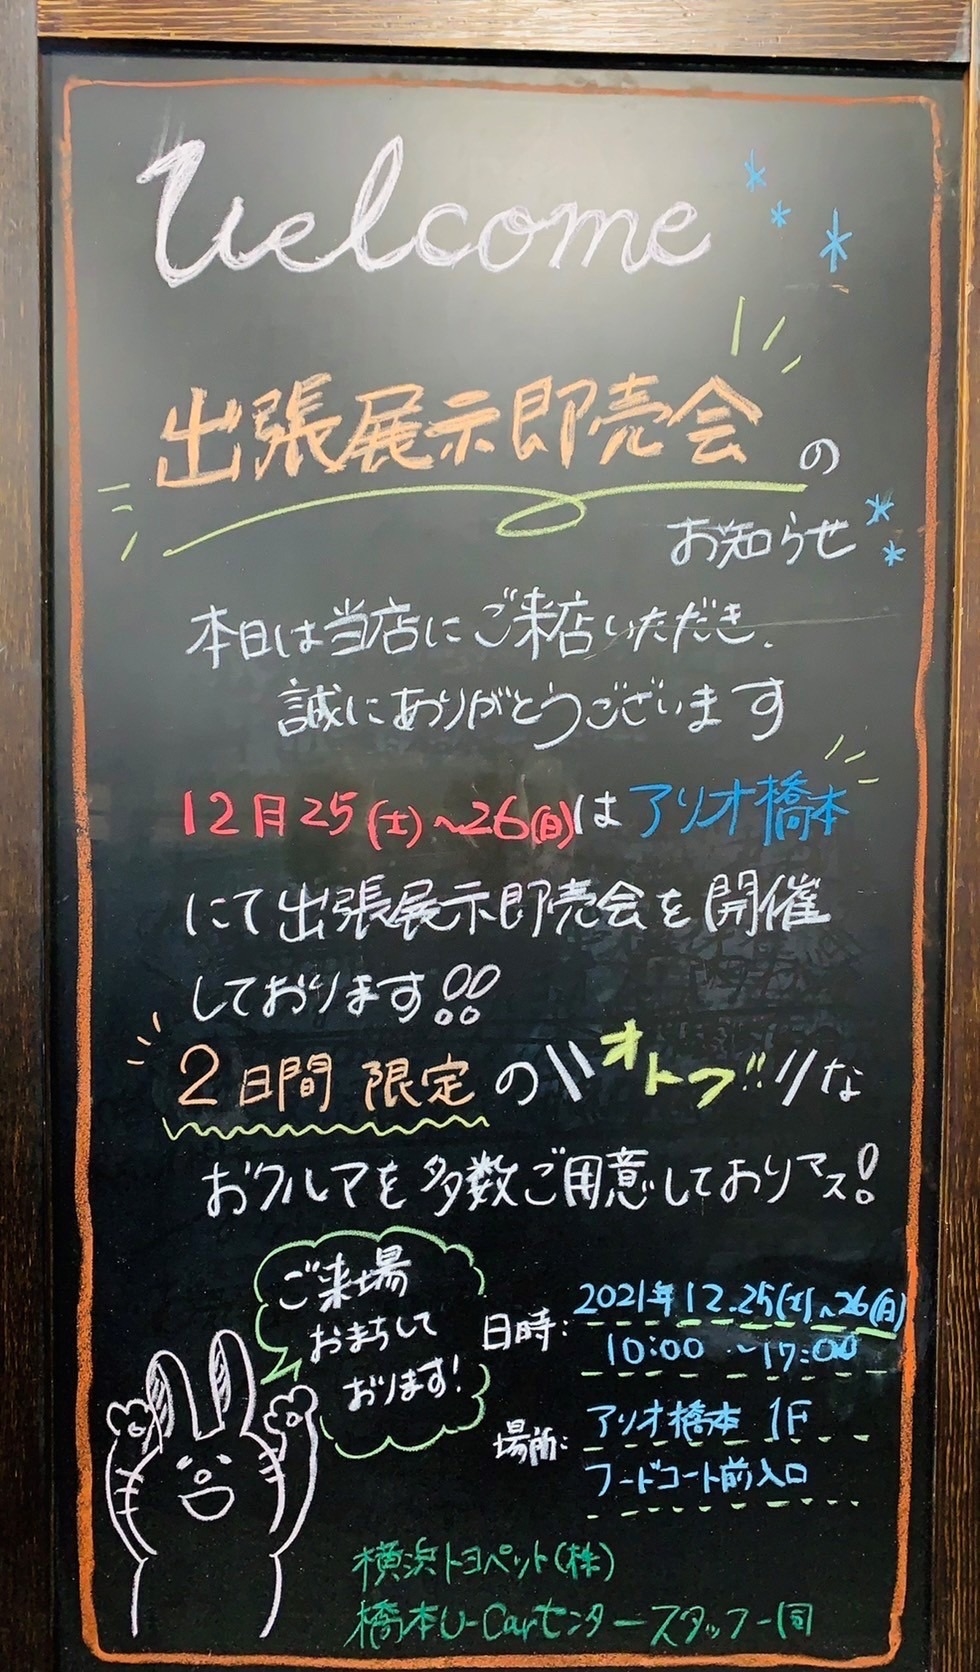 Welcome
出張展示即売会の
お知らせ
本日は当店にご来店いただき、
誠にありがとうございます
12月25(土)~26(日)はアリオ橋本
にて出張展示即売会を開催
しております!!
2日間 限定の\\オトク!!//な
おクルマを多数ご用意しておりマス!
ご来場
おまちして
おります!
日時: 2021年 12.25(土)~26(日)
10:00 ~17:00
場所: アリオ橋本 1F
フードコート前入口
横浜トヨペット(株)
橋本U-Carセンタースタッフ一同